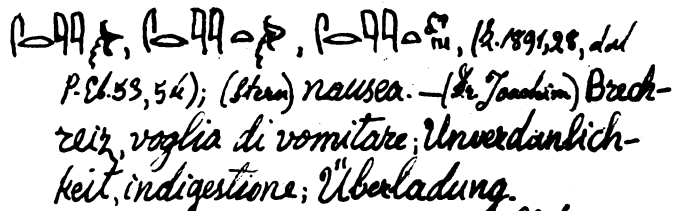 , , , (Z.1891,28, dal
P. Eb. 53, 54); (Stern) nausea. — (Dr. Joachim) Brech-
reiz, voglia di vomitare; Unverdaulich-
keit, indigestione; Überladung.